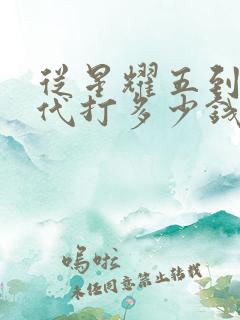 從星耀五到
代打多少錢
嗚啦
未經同意禁止轉載